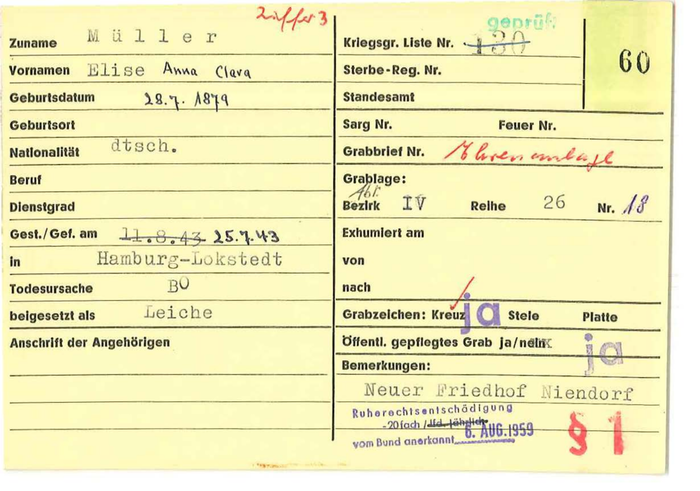 Ziffer 3
Zuname Müller
Vornamen Elise Anna Clara
Geburtsdatum 28.7. 1879
Geburtsort
Nationalität dtsch.
Beruf
Dienstgrad
Gest./Gef. am 11.8.43 25.7.43
in Hamburg-Lokstedt
Todesursache BO
beigesetzt als Leiche
Anschrift der Angehörigen
geprüft
Kriegsgr. Liste Nr. 130
60
Sterbe-Reg. Nr.
Standesamt
Sarg Nr. Feuer Nr.
Grabbrief Nr. Ehrenanlage
Grablage:
Abt.
Bezirk IV Reihe 26 Nr. 18
Exhumiert am
von
nach
Grabzeichen: Kreuz ja Stele Platte
Öffentl. gepflegtes Grab ja/nein ja
Bemerkungen:
Neuer Friedhof Niendorf
Ruherechtsentschädigung
-20fach / lfd. jährlich-
vom Bund anerkannt 6. AUG. 1959
§ 1